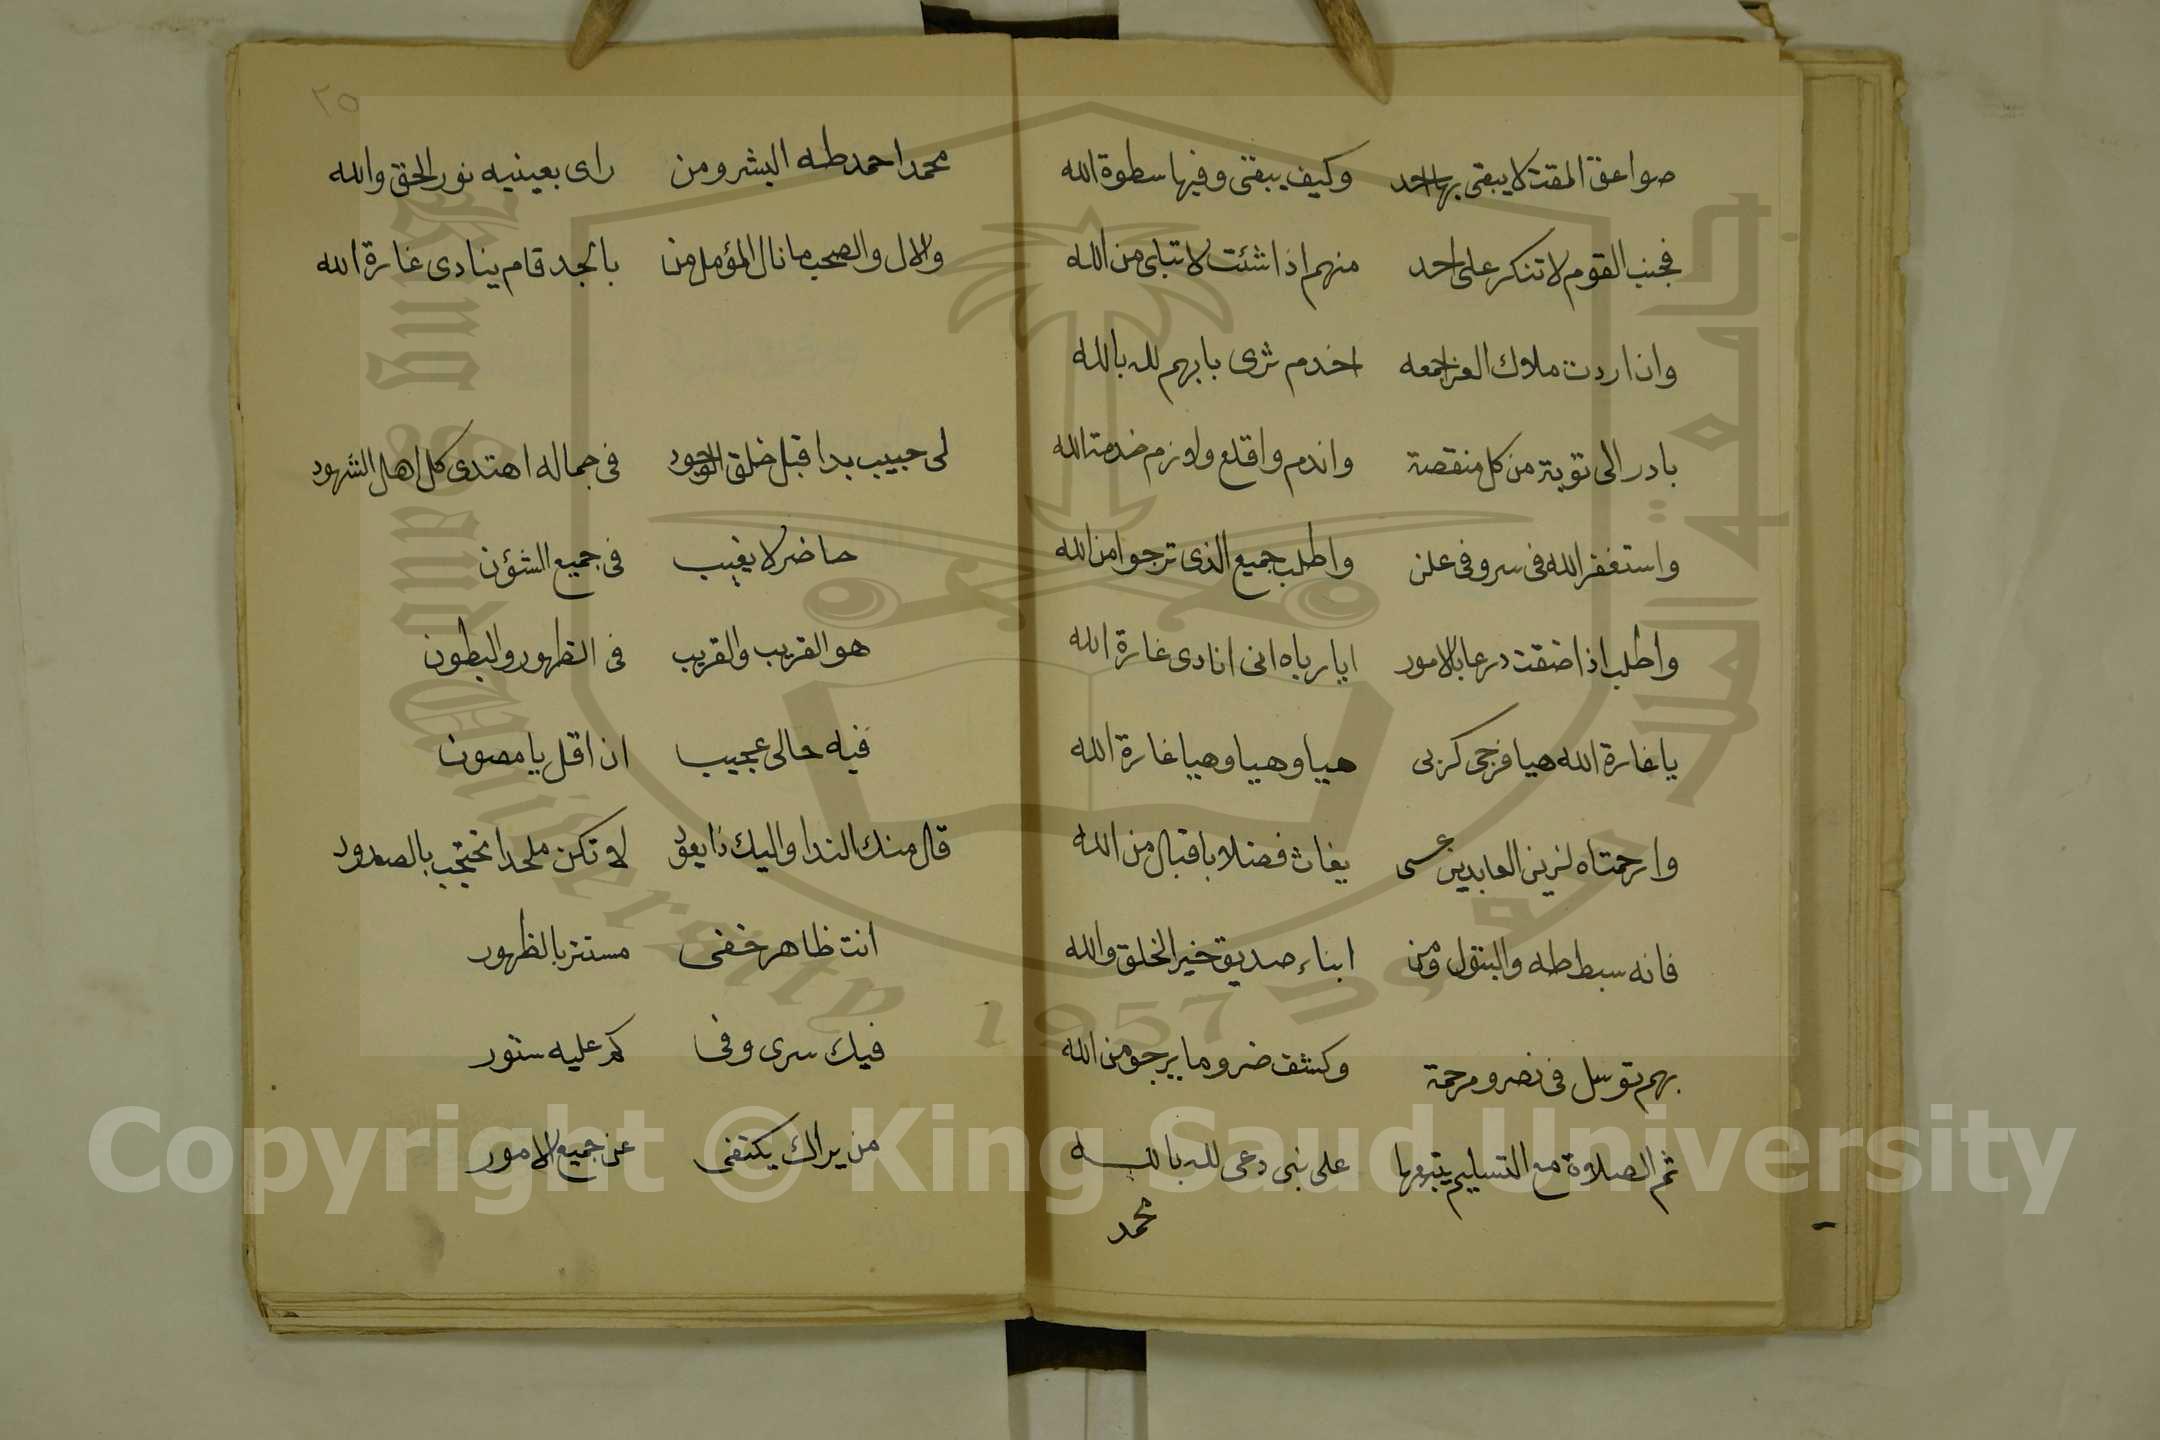 صواعق المقت لا يبقى بها احد وكيف يبقى وفيها سطوة الله
فجنب القوم لا تنكر على احد منهم اذا شئت لا تبلى من الله
واذا اردت ملاك العز اجمعه اخدم ثرى بابهم لله بالله
بادر الى توبة من كل منقصة واندم واقلع ولازم خدمة الله
واستغفر الله فى سر وفى علن واطلب جميع الذى ترجوا من الله
واطلب اذا ضقت درعا بالامور ايا رباه انى انادى غارة الله
يا غارة الله هيا فرجى كربى هيا وهيا وهيا غارة الله
وارحمتاه لزين العابدين عسى يغاث فضلا باقبال من الله
فانه سبط طه والبتول ومن ابناء صديق خير الخلق والله
بهم توسل فى نصر ومرحمة وكشف ضر وما يرجو من الله
ثم الصلاة مع التسليم يتبعها على نبى دعى لله بالله
محمد
٢٥
محمد احمد طه البشر ومن راى بعينيه نور الحق والله
والال والصحب ما نال المؤمل من بالجد قام ينادى غارة الله
لى حبيب بدا قبل خلق الوجود فى جماله اهتدى كل اهل الشهود
حاضر لا يغيب فى جميع الشؤن
هو القريب والقريب فى الظهور والبطون
فيه حالى عجيب ان اقل يا مصون
قال منك الندا واليك ذا يعود لا تكن ملحدا تحتجب بالصدود
انت ظاهر خفى مستتر بالظهور
فيك سرى وفى كم عليه ستور
من يراك يكتفى عن جميع الامور
Copyright © King Saud University
King Saud University
1957
جامعة الملك سعود